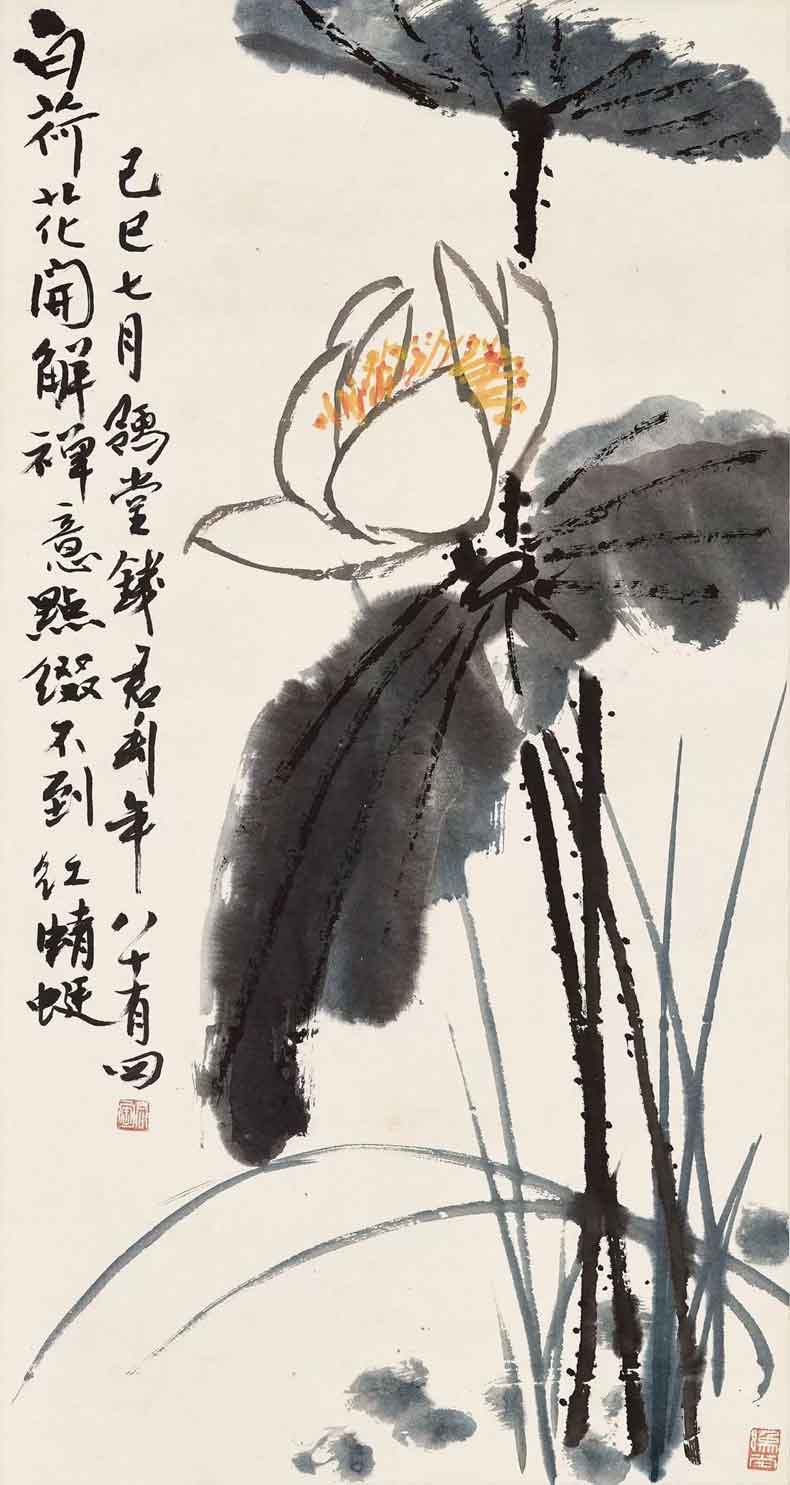 白荷花開解禪意點綴不到紅蜻蜓
己巳七月豫堂錢君匋年八十有四